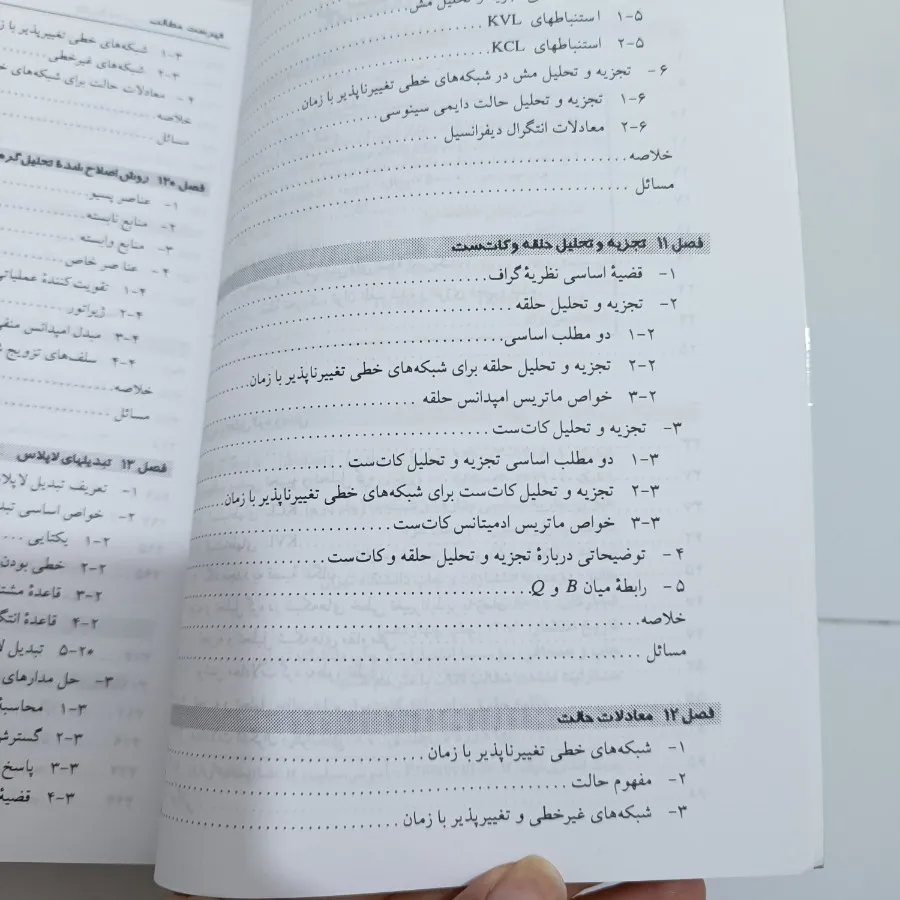 تجزیه و تحلیل مش
۱-۵ استنباطهای KVL
۲-۵ استنباطهای KCL
۶- تجزیه و تحلیل مش در شبکه‌های خطی تغییرناپذیر با زمان
۱-۶ تجزیه و تحلیل حالت دایمی سینوسی
۲-۶ معادلات انتگرال دیفرانسیل
خلاصه
مسائل
فصل ۱۱ تجزیه و تحلیل حلقه و کات‌ست
۱- قضیهٔ اساسی نظریهٔ گراف
۲- تجزیه و تحلیل حلقه
۱-۲ دو مطلب اساسی
۲-۲ تجزیه و تحلیل حلقه برای شبکه‌های خطی تغییرناپذیر با زمان
۳-۲ خواص ماتریس امپدانس حلقه
۳- تجزیه و تحلیل کات‌ست
۱-۳ دو مطلب اساسی تجزیه و تحلیل کات‌ست
۲-۳ تجزیه و تحلیل کات‌ست برای شبکه‌های خطی تغییرناپذیر با زمان
۳-۳ خواص ماتریس ادمیتانس کات‌ست
۴- توضیحاتی دربارهٔ تجزیه و تحلیل حلقه و کات‌ست
۵- رابطهٔ میان B و Q
خلاصه
مسائل
فصل ۱۲ معادلات حالت
۱- شبکه‌های خطی تغییرناپذیر با زمان
۲- مفهوم حالت
۳- شبکه‌های غیرخطی و تغییرپذیر با زمان
فهرست مطالب
۱-۳ شبکه‌های خطی تغییرپذیر با زمان
۲-۳ شبکه‌های غیرخطی
۴- معادلات حالت برای شبکه‌های
خلاصه
مسائل
فصل ۱۲* روش اصلاح شدهٔ تحلیل گره
۱- عناصر پسیو
۲- منابع نابسته
۳- منابع وابسته
۴- عناصر خاص
۱-۴ تقویت کنندهٔ عملیاتی
۲-۴ ژیراتور
۳-۴ مبدل امپدانس منفی
۴-۴ سلف‌های تزویج
خلاصه
مسائل
فصل ۱۳ تبدیلهای لاپلاس
۱- تعریف تبدیل لاپلاس
۲- خواص اساسی تبدیل
۱-۲ یکتایی
۲-۲ خطی بودن
۳-۲ قاعدهٔ
۴-۲ قاعدهٔ
۵-۲* تبدیل
۳- حل مدارهای
۱-۳ محاسبهٔ
۲-۳ گسترش
۳-۳ پاسخ
۴-۳ قضیهٔ